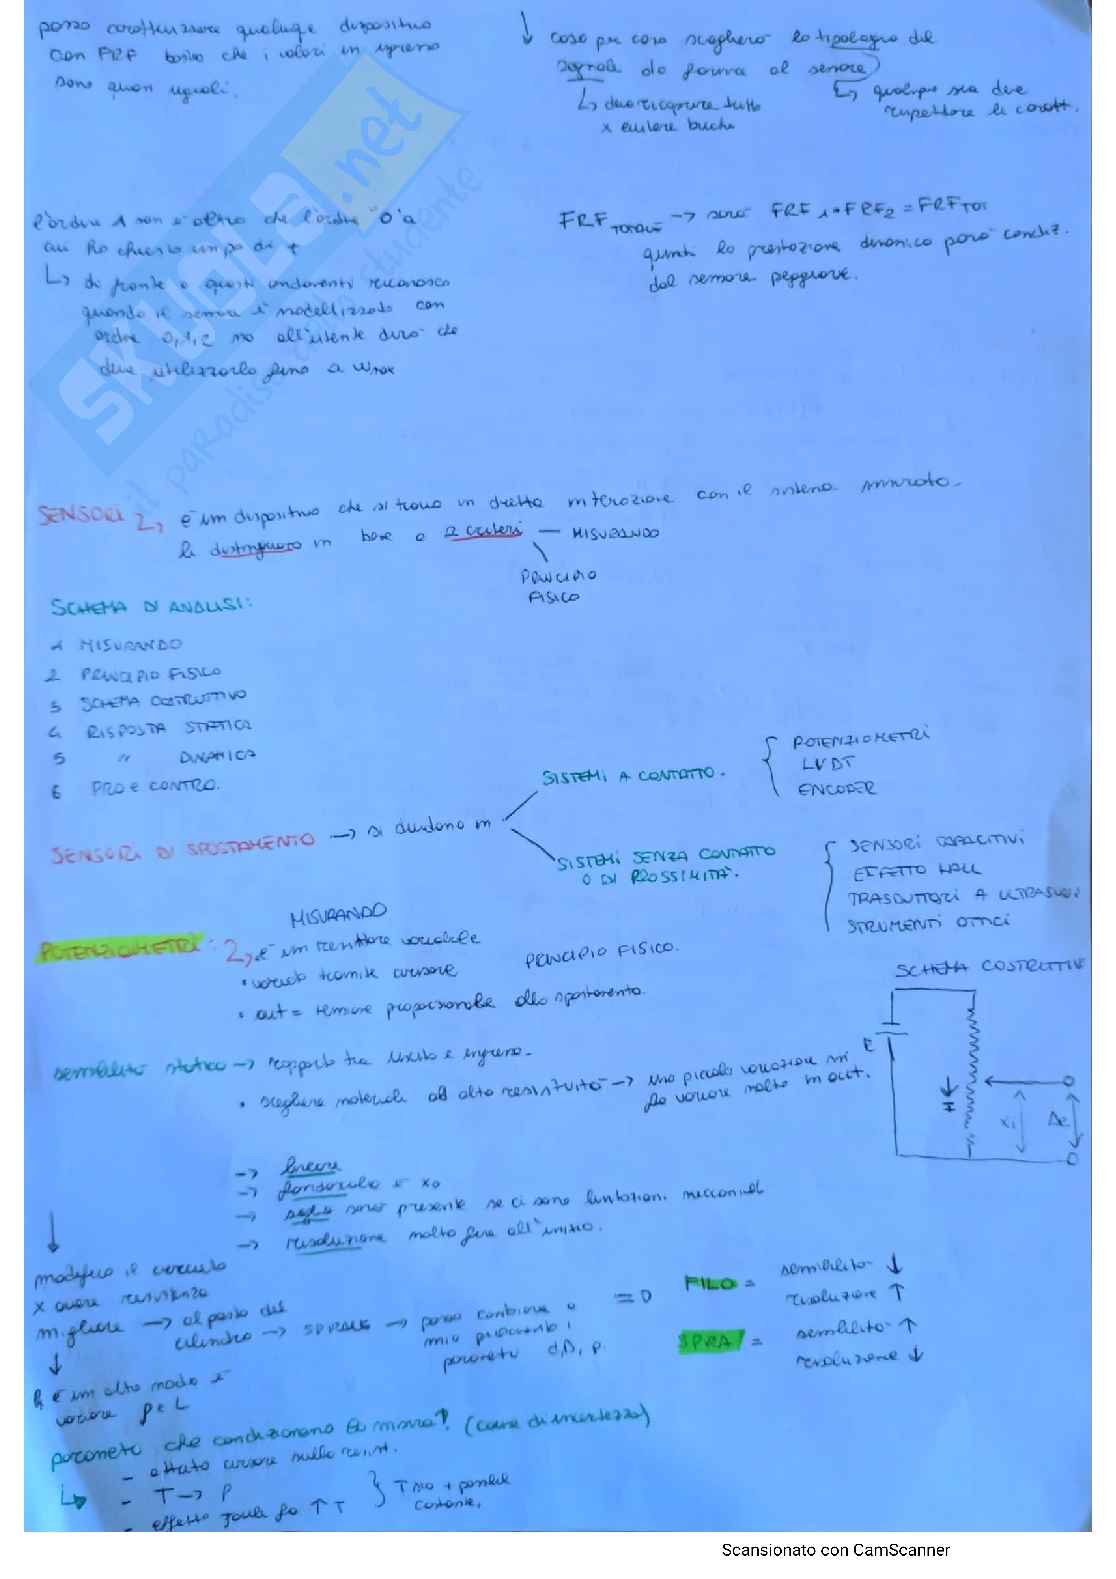 posso caratterizzare qualunque dispositivo
con FRF basta che i valori in ingresso
sono quasi uguali.
caso per caso sceglierò la tipologia del
segnale da fornire al sensore
↳ devo ricoprire tutto
x evitare buchi
↳ qualunque sia deve
rispettare le caratt.
l'ordine 1 non è altro che l'ordine "0" a
cui ho chiesto un po' di +
↳ di fronte a questi andamenti riconosco
quando il sensore è modellizzato con
ordine 0,1,2 ma all'utente dirò che
deve utilizzarlo fino a ωmax
FRF TOTALE → sarà FRF1 * FRF2 = FRFTOT
quindi la prestazione dinamica però condiz.
dal sensore peggiore.
SKUOLA.net
il paradiso dello studente
SENSORI è un dispositivo che si trova in diretta interazione con il sistema misurato.
li distinguono in base a 2 criteri — MISURANDO
PRINCIPIO
FISICO
SCHEMA DI ANALISI:
1 MISURANDO
2 PRINCIPIO FISICO
3 SCHEMA COSTRUTTIVO
4 RISPOSTA STATICA
5 " DINAMICA
6 PRO E CONTRO.
SENSORI DI SPOSTAMENTO → si dividono in
SISTEMI A CONTATTO.
POTENZIOMETRI
LVDT
ENCODER
SISTEMI SENZA CONTATTO
O DI PROSSIMITÀ.
SENSORI CAPACITIVI
EFFETTO HALL
TRASDUTTORI A ULTRASUONI
STRUMENTI OTTICI
MISURANDO
POTENZIOMETRI: è un resistore variabile
• variato tramite cursore
PRINCIPIO FISICO.
• out = tensione proporzionale allo spostamento.
SCHEMA COSTRUTTIVO
E
I
xi
Δe
sensibilità statica → rapporto tra uscita e ingresso.
• scegliere materiali ad alta resistività → una piccola variazione mi
fa variare molto in out.
→ lineare
→ fondoscala è x0
→ soglia sarà presente se ci sono limitazioni meccaniche
→ risoluzione molto fine all'inizio.
modifico il circuito
x avere resistenza
migliore → al posto del
cilindro → SPIRALE → posso cambiare a
mio piacimento i
parametri d, D, ρ.
FILO = sensibilità ↓
risoluzione ↑
SPIRA = sensibilità ↑
risoluzione ↓
un altro modo è
variare ρ e L
parametri che condizionano la misura? (cause di incertezza)
- attrito cursore sulla resist.
- T → ρ
- effetto Joule fa ↑ T
T sia + possibile
costante,
Scansionato con CamScanner